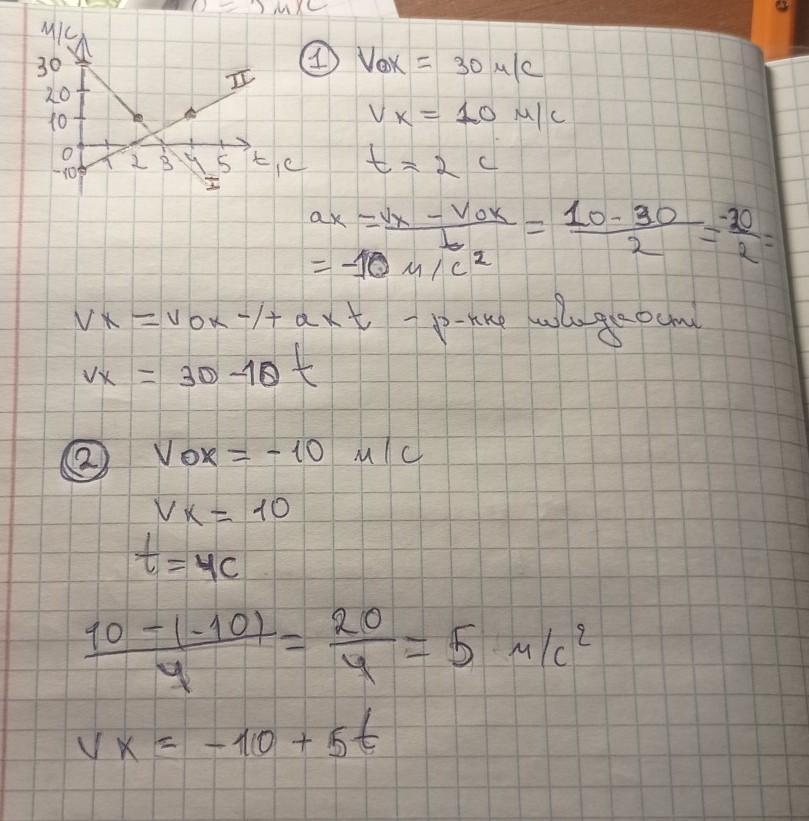 м/с
30
20
10
0
-10
1 2 3 4 5 t, c
I
II
① V0x = 30 м/с
Vx = 10 м/с
t = 2 с
ax = Vx - V0x / t = 10 - 30 / 2 = -20 / 2 =
= -10 м/с²
Vx = V0x -/+ axt - р-ння швидкості
Vx = 30 - 10t
② V0x = -10 м/с
Vx = 10
t = 4c
10 - (-10) / 4 = 20 / 4 = 5 м/с²
Vx = -10 + 5t